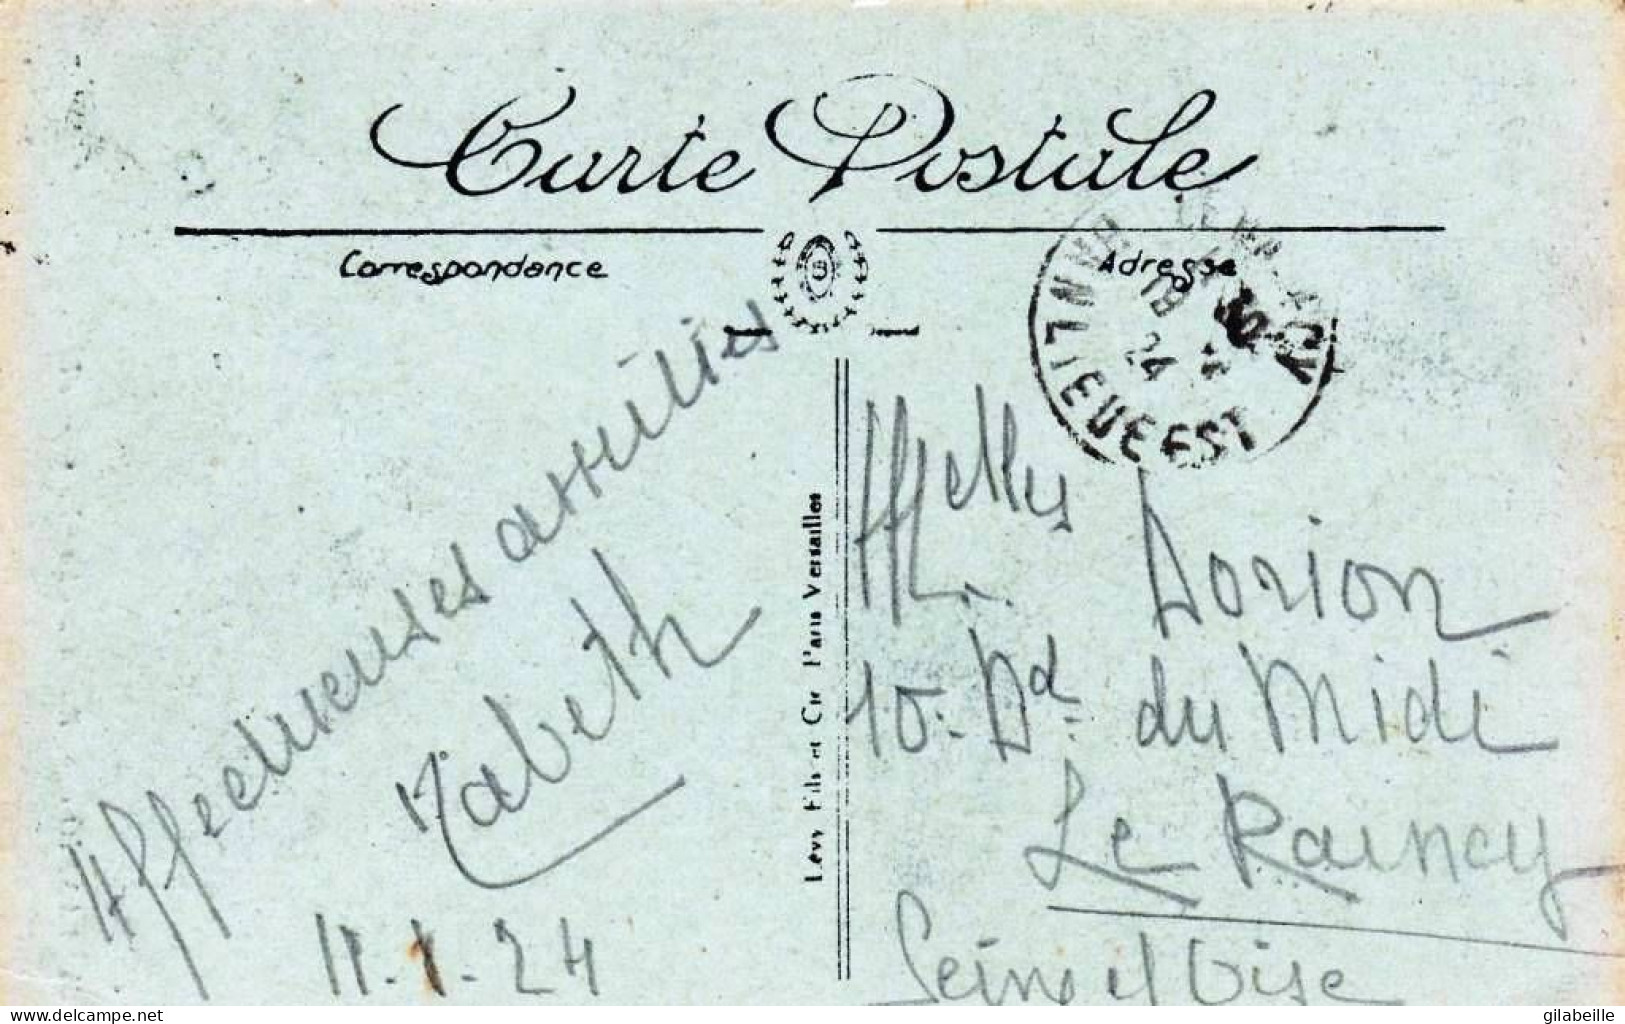 Carte Postale
Correspondance
Adresse
18 30
24
Affectueuses amitiés
Mabeth
11.1.24
Lévy Fils et Cie Paris Versailles
Melles
Dorion
10. Bd du Midi
Le Raincy
Seine et Oise
delcampe.net
gilabeille